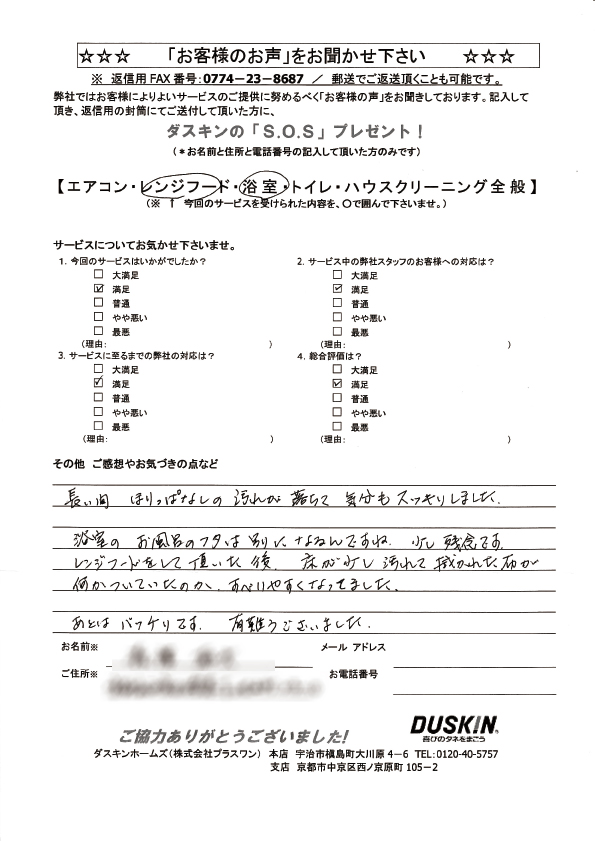 ☆☆☆ 「お客様のお声」をお聞かせ下さい ☆☆☆
※ 返信用FAX番号:0774-23-8687 / 郵送でご返送頂くことも可能です。
弊社ではお客様によりよいサービスのご提供に努めるべく「お客様の声」をお聞きしております。記入して
頂き、返信用の封筒にてご送付して頂いた方に、
ダスキンの「S.O.S」プレゼント!
(*お名前と住所と電話番号の記入して頂いた方のみです)
【エアコン・レンジフード・浴室・トイレ・ハウスクリーニング全般】
(※ ↑ 今回のサービスを受けられた内容を、○で囲んで下さいませ。)
サービスについてお気かせ下さいませ。
1. 今回のサービスはいかがでしたか?
□ 大満足
☑ 満足
□ 普通
□ やや悪い
□ 最悪
(理由: )
2. サービス中の弊社スタッフのお客様への対応は?
□ 大満足
☑ 満足
□ 普通
□ やや悪い
□ 最悪
(理由: )
3. サービスに至るまでの弊社の対応は?
□ 大満足
☑ 満足
□ 普通
□ やや悪い
□ 最悪
(理由: )
4. 総合評価は?
□ 大満足
☑ 満足
□ 普通
□ やや悪い
□ 最悪
(理由: )
その他 ご感想やお気づきの点など
長い間 ほりっぱなしの汚れが落ちて 気分もスッキリしました。
浴室の お風呂のフタは別になるんですね。少し残念です。
レンジフードをして頂いた後、床が少し汚れて 拭かれた布が
何かついていたのか、すべりやすくなってました。
あとは バッチリです。有難うございました。
お名前※
メール アドレス
ご住所※
お電話番号
ご協力ありがとうございました!
DUSKIN
喜びのタネをまこう
ダスキンホームズ(株式会社プラスワン) 本店 宇治市槇島町大川原4-6 TEL:0120-40-5757
支店 京都市中京区西ノ京原町105-2